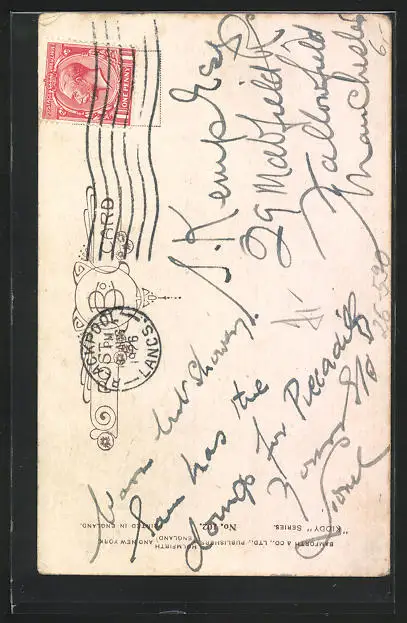 POSTAGE & INLAND REVENUE
ONE PENNY
POST CARD
BLACKPOOL
LANCS.
PM
1926
J. Kemp Esq
29 Mabfield Rd
Fallowfield
Manchester
6.
Warm but showery.
Sam has the
doings for Piccadilly
Lionel
26-530
BAMFORTH & CO., LTD., PUBLISHERS, HOLMFIRTH (ENGLAND) AND NEW YORK
"KIDDY" SERIES.
No. 102.
PRINTED IN ENGLAND.